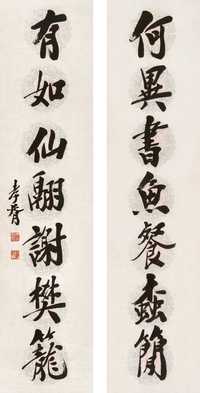 何異書魚餐蠹簡
有如仙翮謝樊籠
孝胥